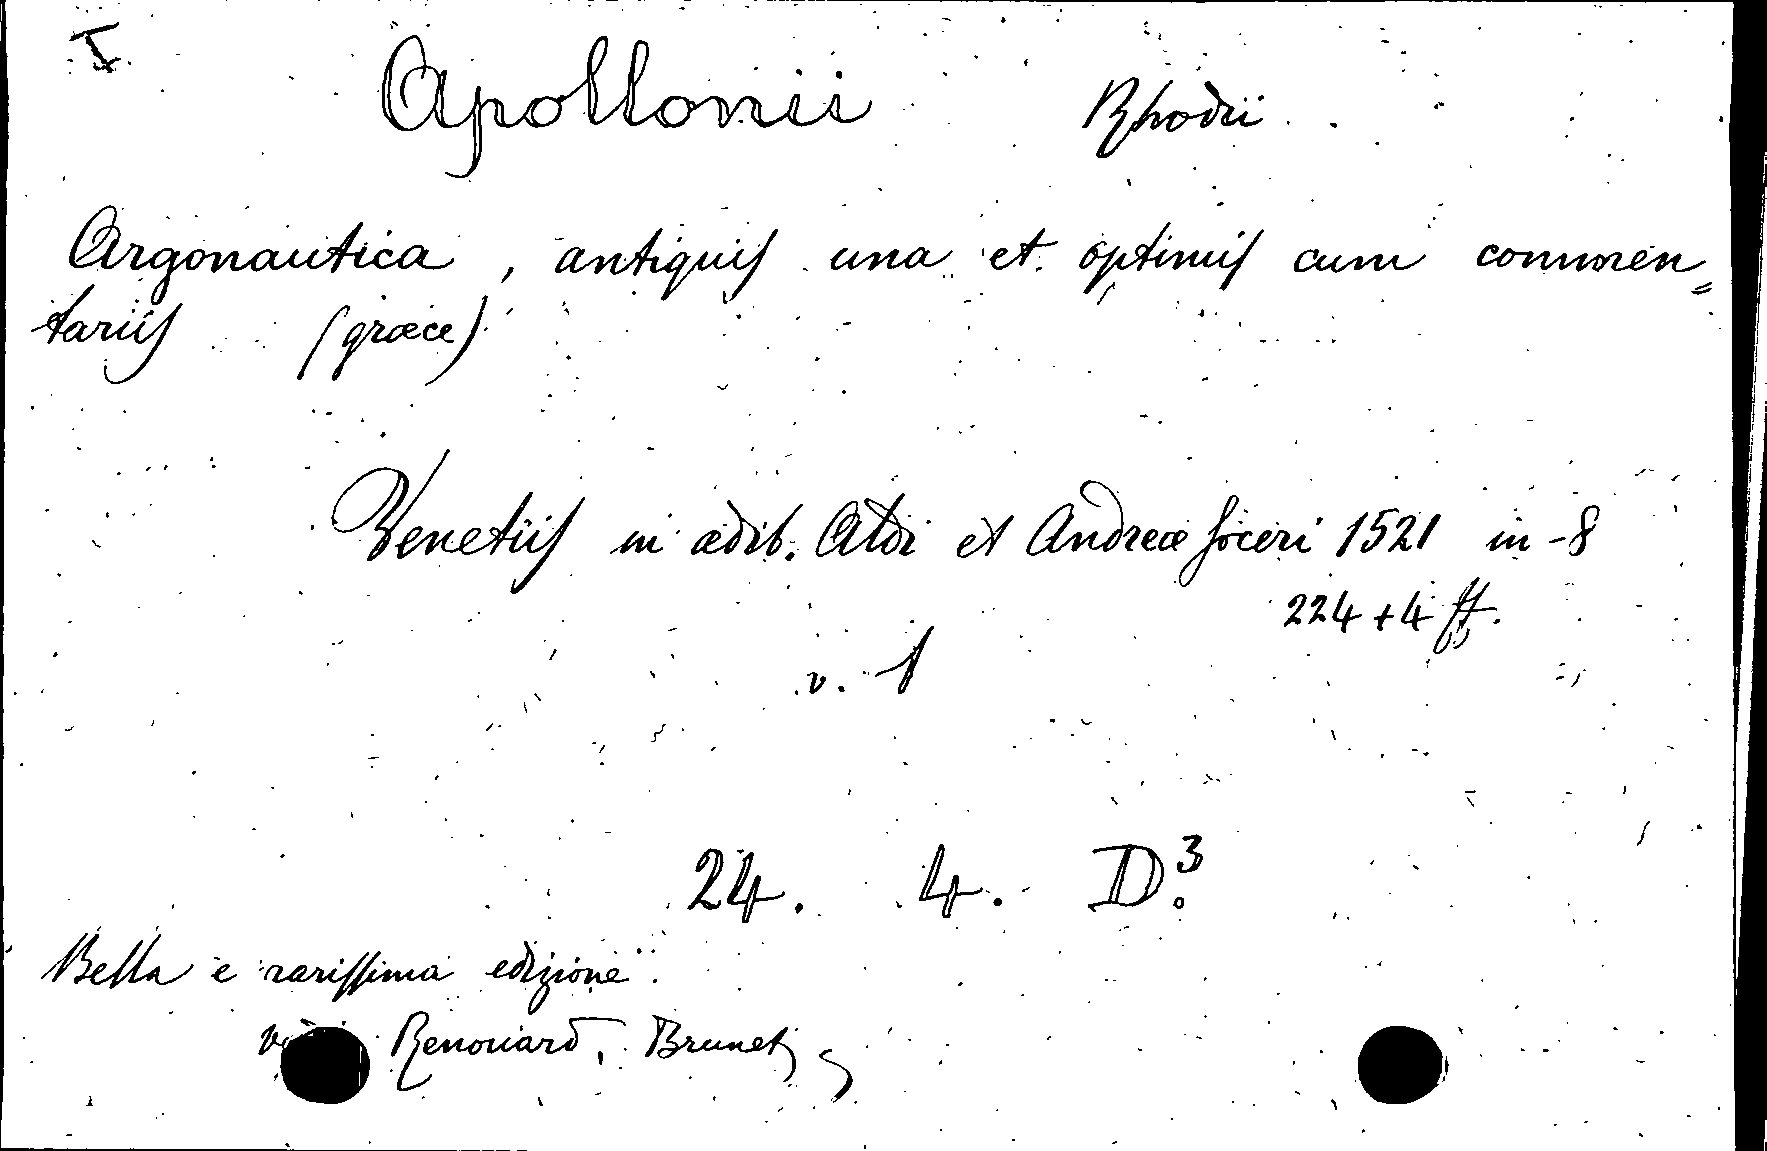 I
Apollonii Rhodii
Argonautica, antiquis una et optimis cum commen=
tariis (græce)
Venetiis in ædib. Aldi et Andreæ soceri 1521 in-8
224+4 ff.
v. 1
24. 4. D.3
Bella e rarissima edizione.
Renouard, Brunet